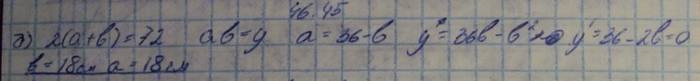 46.45
д) 2(a+b)=72 ab=y a=36-b y=36b-b² y'=36-2b=0
b=18см a=18см